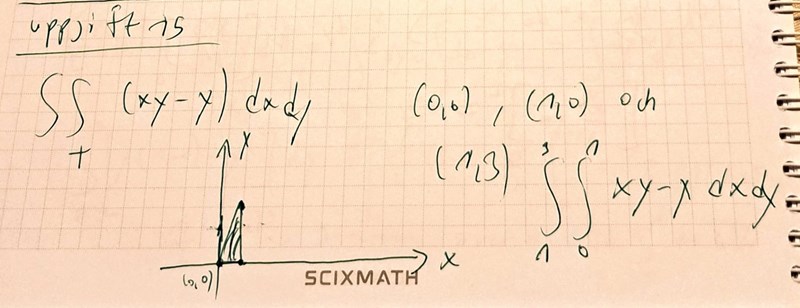 uppgift 15
∫∫_T (xy-y) dxdy
(0,0), (1,0) och
(1,3)
∫_1^3 ∫_0^1 xy-y dxdy
y
x
(0,0)
SCIXMATH